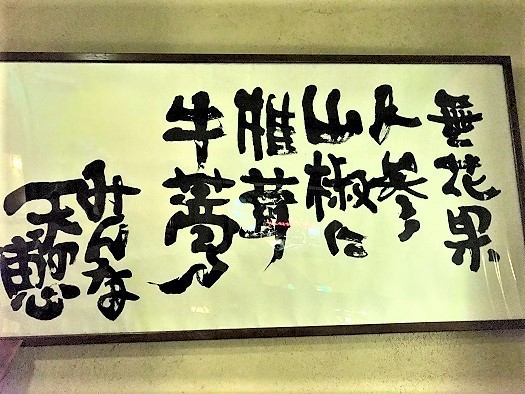 無花果
人参
山椒に
椎茸
牛蒡
みんな
天恵